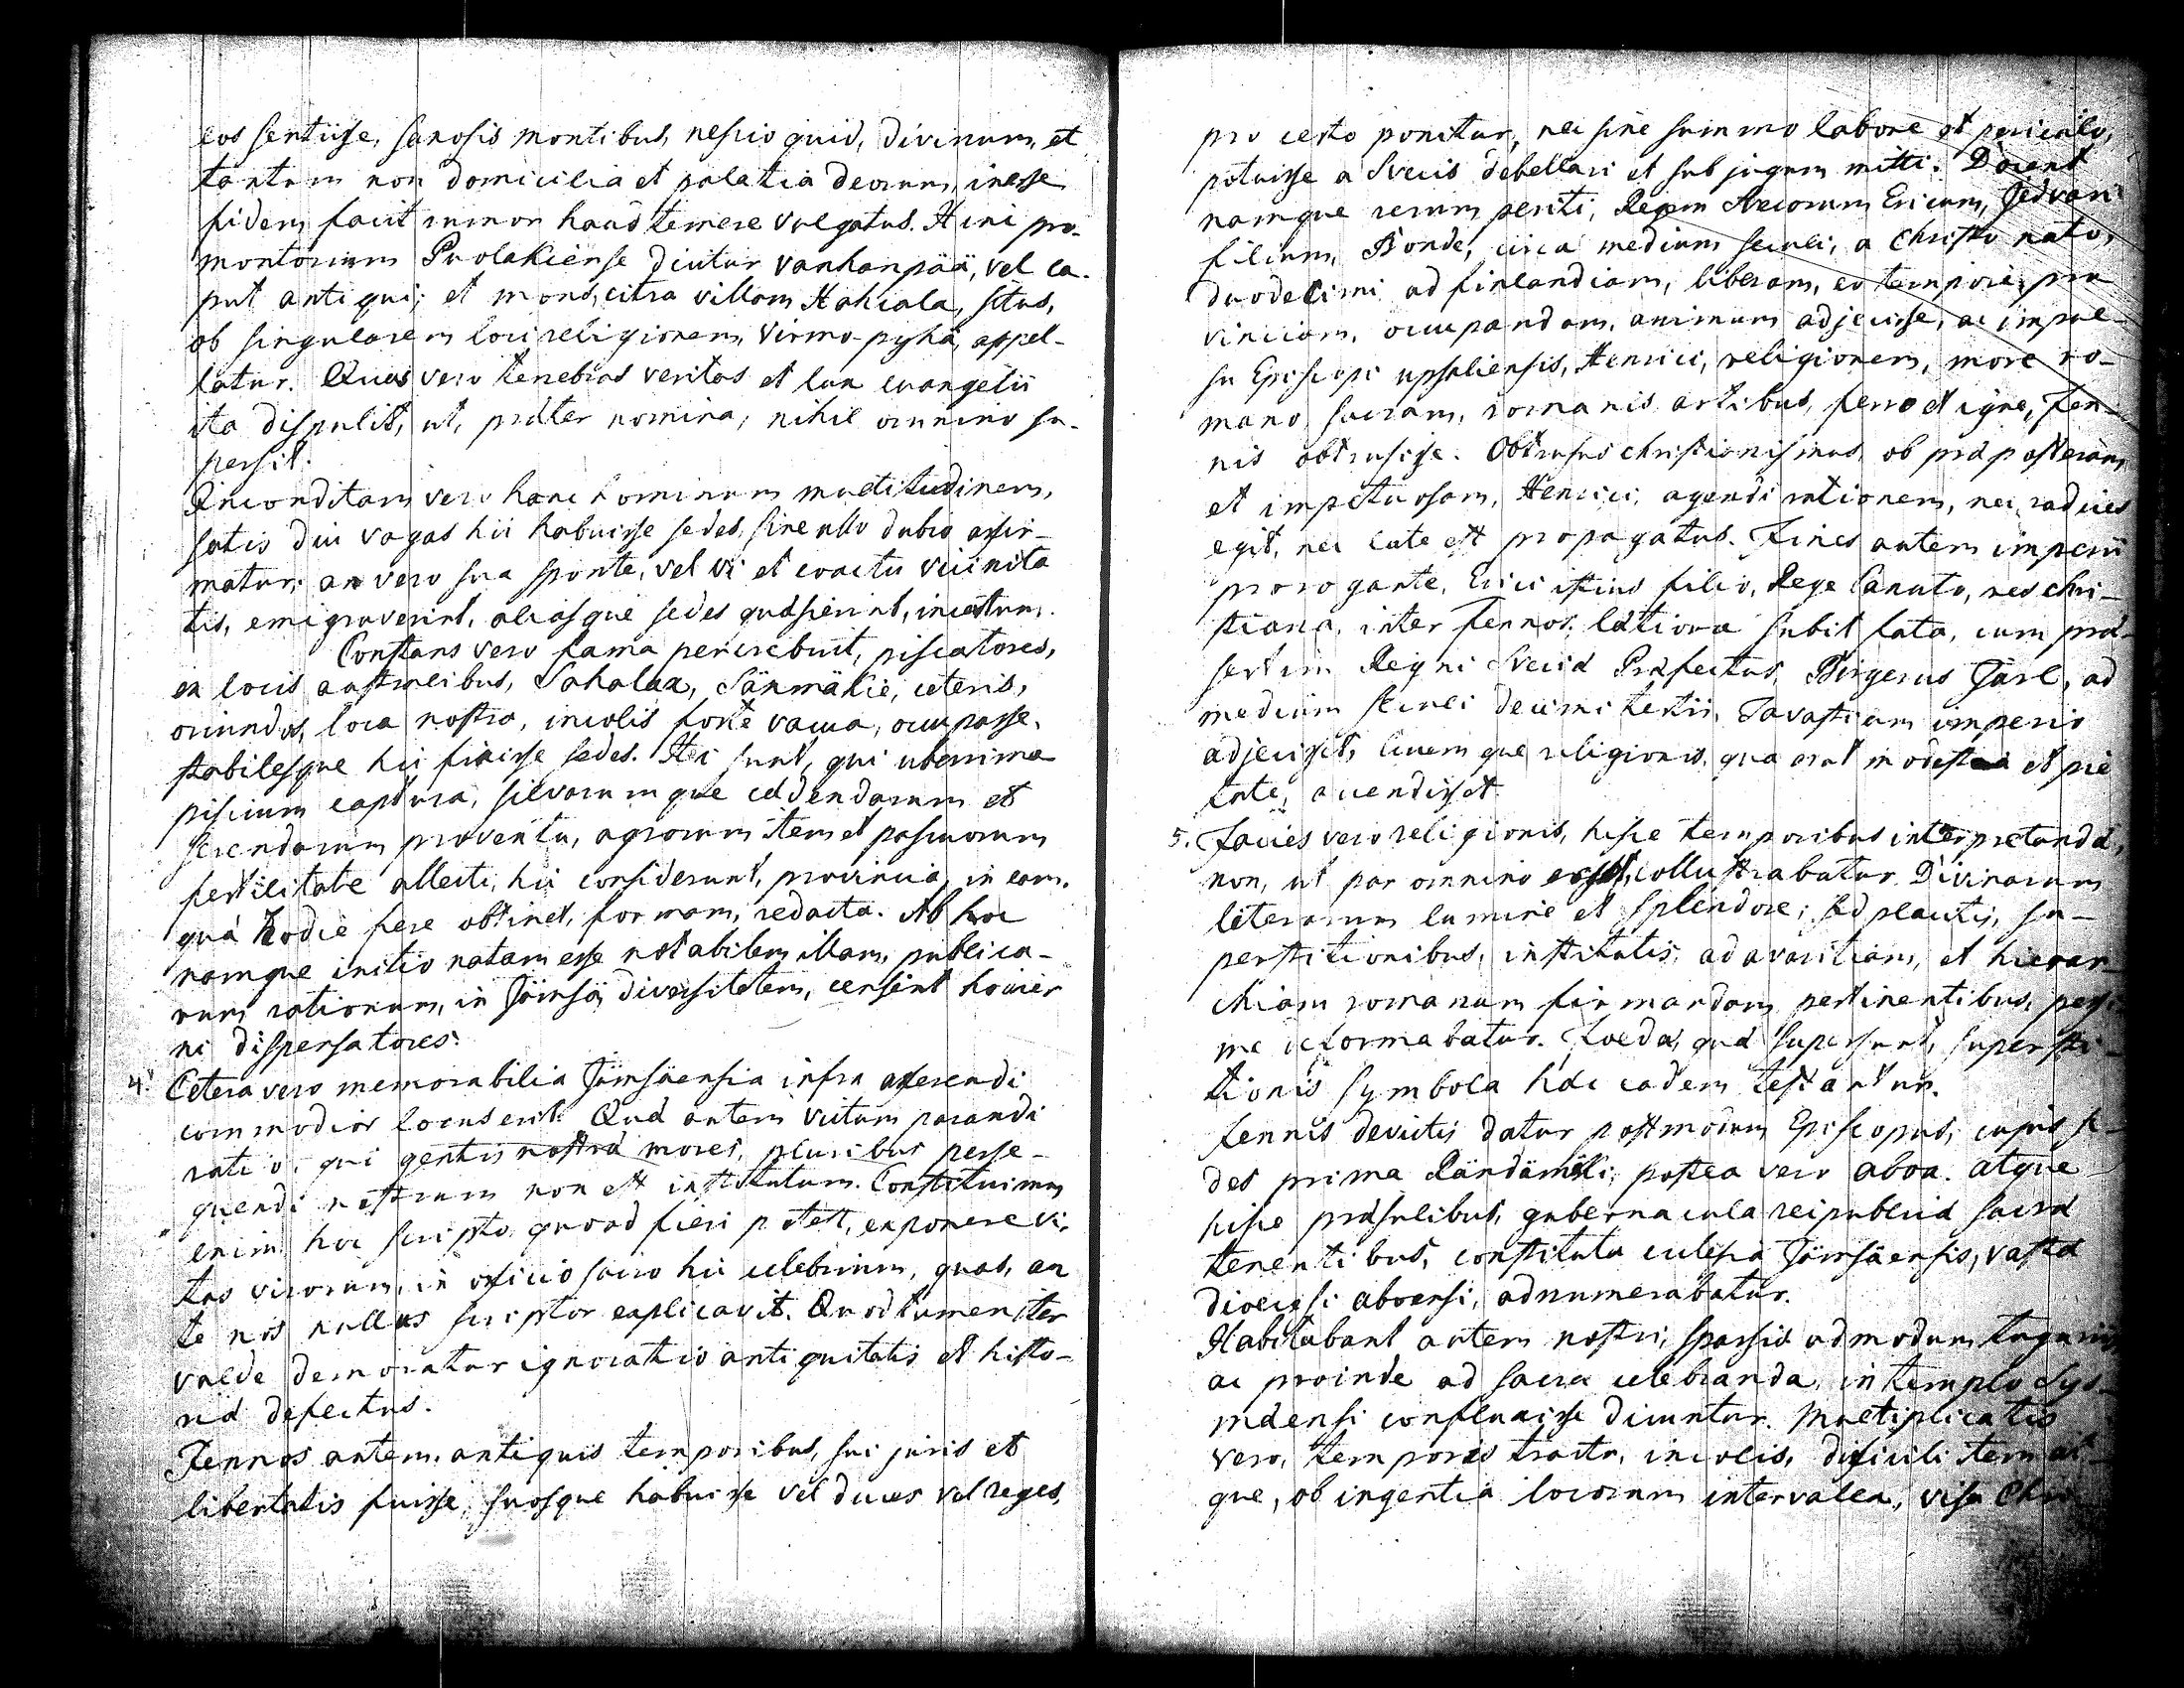 eos sentiisse, saxosis montibus, nescio quid, divinum, et
tantum non domicilia et palatia deorum, inesse
fidem facit rumor haud temere vulgatus. Hinc pro-
montorium Puolakiense dicitur vanhanpää, vel ca-
put antiqui; et mons, citra villam Hahiala, situs,
ob singularem loci religionem, virmo-pyhä, appel-
latur. Quas vero tenebras veritas et lux evangelii
ita dispulit, ut, præter nomina, nihil omnino su-
persit.
Inconditam vero hanc hominum multitudinem,
satis diu vagas hic habuisse sedes, sine ullo dubio affir-
matur; an vero sua sponte, vel vi et coactu vicinita
tis, emigraverint, aliasque sedes quæsierint, incertum.
Constans vero fama percrebuit, piscatores,
ex locis australibus, Sahalax, Sänmäkie, ceteris,
oriundos, loca nostra, incolis forte vacua, occupasse,
stabilesque hic fixisse sedes. Hei sunt, qui uberrima
piscium captura, silvarumque cædendarum et
serendarum proventu, agrorum item et pascuorum
fertilitate allecti, hic considerunt, provincia, in eam,
quá hodie fere obtinet, formam, redacta. Ab hoc
namque initio natam esse notabilem illam, publica-
rum rationum, in Jämsä, diversitatem, censent hodier
ni dispensatores.
4. Cetera vero memorabilia Jämsäensia infra afferendi
commodior locus erit. Quæ autem victum parandi
ratio, qui gentis nostræ mores, pluribus perse-
quendi nostrum non est institutum. Constituimus
enim hoc scripto, quoad fieri potest, exponere vi-
tas virorum, in officio sacro hic celebrium, quas, an
te nos nullus scriptor explicavit. Quod tamen iter
valde demoratur ignoratio antiquitatis et histo-
riæ defectus.
Fennos autem, antiquis temporibus, sui juris et
libertatis fuisse, suosque habuisse vel duces vel reges,
pro certo ponitur, nec sine summo labore et periculo,
potuisse a Svecis debellari et sub jugum mitti. Docent
namque rerum periti, Regem Svecorum Ericum, Jedvari
filium, Bonde, circa medium seculi, a Christo nato,
duodecimi ad finlandiam, liberam, eo tempore, pro
vinciam, occupandam, animum adjecisse, ac impul-
su Episcopi upsaliensis, Henrici, religionem, more ro-
mano sacram, romanis artibus, ferro et igne, Fen-
nis obtrusisse. Obtrusus christianismus, ob præposteram
et impetuosam, Henrici, agendi rationem, nec radices
egit, nec late est propagatus. Fines autem imperii
prorogante, Erici istius filio, Rege Canuto, res chri-
stiana, inter fennos, lætiora subit fata, cum præ-
sertim Regni Sveciæ Præfectus, Birgerus Jarl, ad
medium seculi decimi tertii, Tavastiam imperio
adjecisset, lucemque religionis, qua erat modestia et pie
tate, accendisset.
5. Facies vero religionis, hisce temporibus interpretandæ,
non, ut par omnino esset, collustrabatur Divinarum
literarum lumine et splendore; sed placitis, su-
perstitionibus, institutis, ad avaritiam, et hierar-
chiam romanam firmandam pertinentibus, pessi
me deformabatur. Foeda, quæ supersunt, supersti-
tionis symbola hæc eadem testantur.
Fennis devictis datur postmodum Episcopus, cujus se-
des prima Rändämäki, postea vero aboa. Atque
hisce præsulibus, gubernacula reipublicæ sacræ
tenentibus, constituta eclesia Jämsäensis, vastæ
dioecesi aboensi, adnumerabatur.
Habitabant autem nostri, sparsis admodum tuguriis,
ac proinde ad sacra celebranda, in templo Sys-
mäensi confluxisse dicuntur. Multiplicatis
vero, temporis tractu, incolis, difficili item at-
que, ob ingentia locorum intervalla, visa